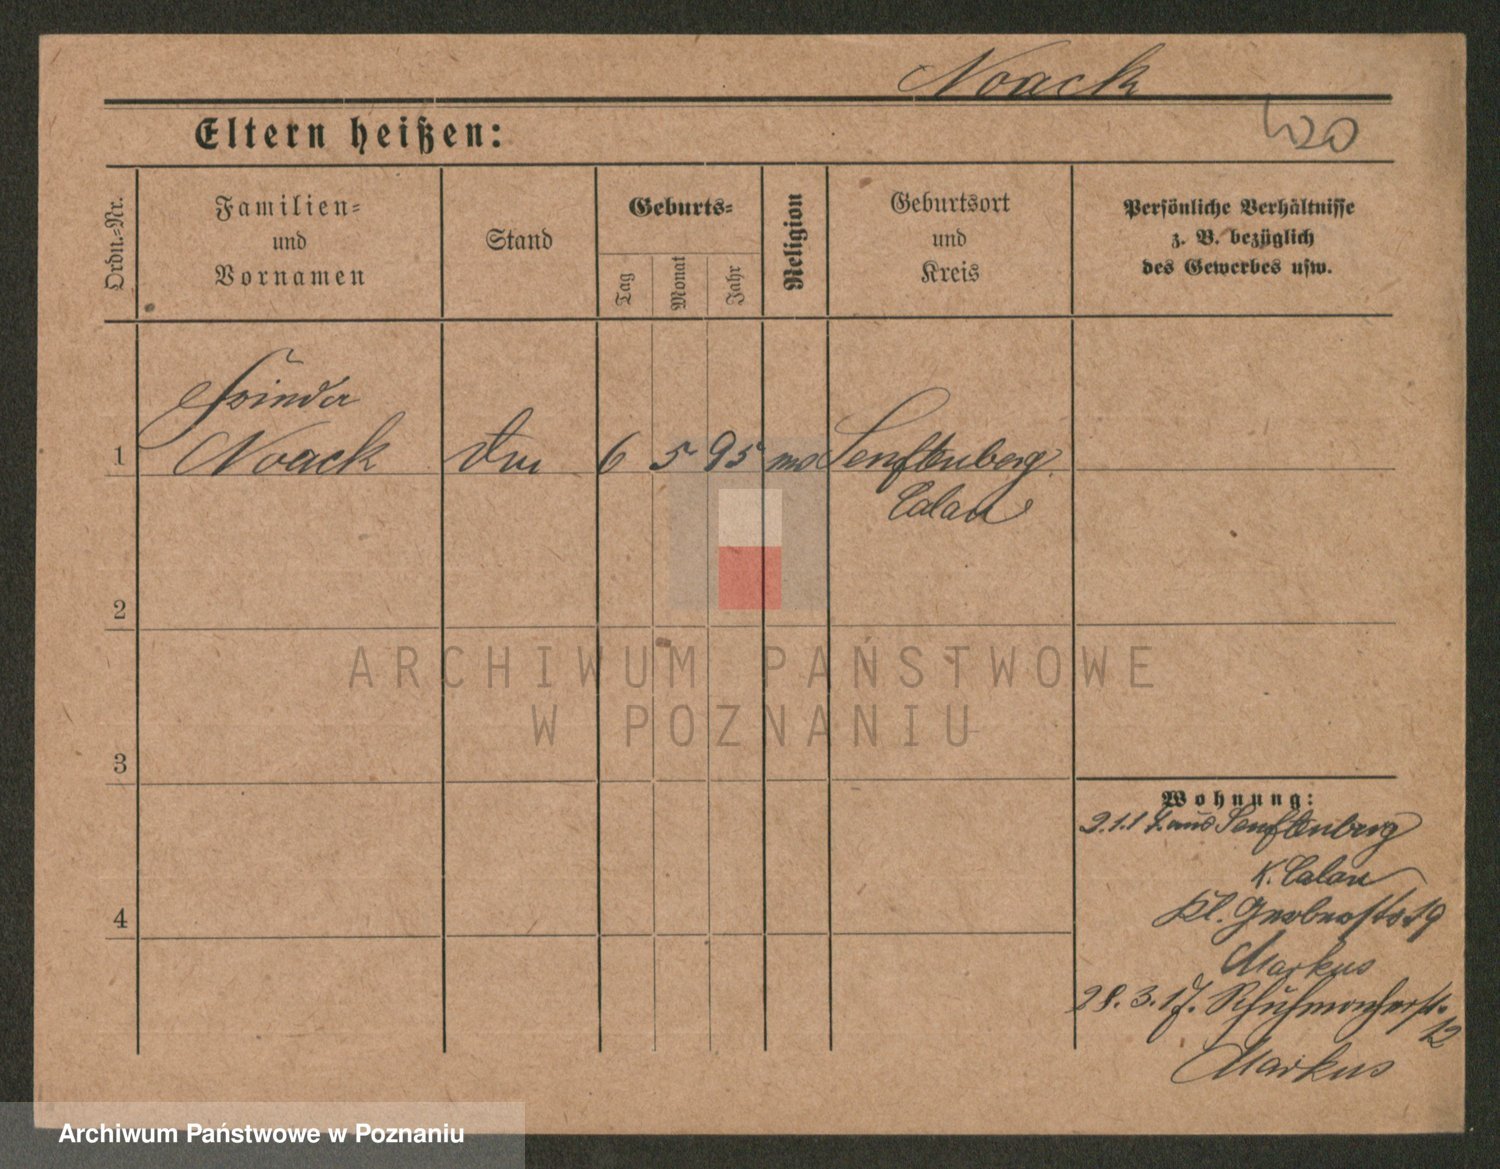 Noack
Eltern heißen:
Ordn.-Nr.
Familien-
und
Vornamen
Stand
Geburts-
Tag
Monat
Jahr
Religion
Geburtsort
und
Kreis
Persönliche Verhältnisse
z. B. bezüglich
des Gewerbes usw.
1
Noack
6 5 95
Senftenberg
Calau
2
3
4
ARCHIWUM PAŃSTWOWE
W POZNANIU
Wohnung:
Senftenberg
K. Calau
Kl. Gerberstr 19
Markus
28. 3. 17. Schuhmacherstr.
12
Markus
Archiwum Państwowe w Poznaniu